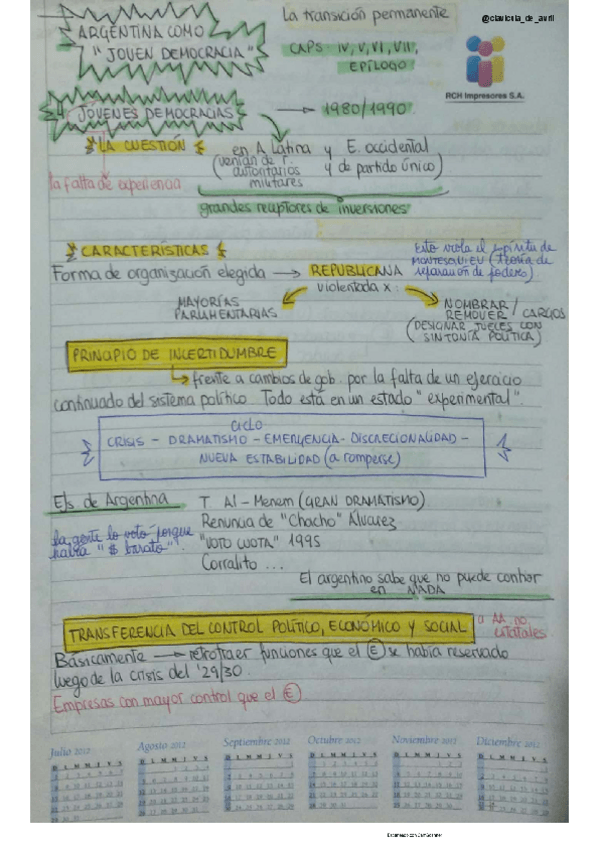 La transición permanente
@clavicula_de_avril
ARGENTINA COMO
"JOVEN DEMOCRACIA"
CAPS - IV, V, VI, VII,
EPÍLOGO
RCH Impresores S.A.
JÓVENES DEMOCRACIAS → 1980/1990
LA CUESTIÓN
en A. Latina y E. occidental
(venían de r. autoritarios militares y de partido único)
la falta de experiencia
grandes receptores de inversiones
CARACTERÍSTICAS
Esto viola el espíritu de
MONTESQUIEU (teoría de
separación de poderes)
Forma de organización elegida → REPUBLICANA
violentada x:
MAYORÍAS
PARLAMENTARIAS
NOMBRAR/
REMOVER CARGOS
(DESIGNAR JUECES CON
SINTONÍA POLÍTICA)
PRINCIPIO DE INCERTIDUMBRE
frente a cambios de gob. por la falta de un ejercicio
continuado del sistema político. Todo está en un estado "experimental".
CICLO
CRISIS - DRAMATISMO - EMERGENCIA - DISCRECIONALIDAD -
NUEVA ESTABILIDAD (a romperse)
Ejs de Argentina
T Al - Menem (GRAN DRAMATISMO)
Renuncia de "Chacho" Álvarez
la gente lo votó porque
había "$ barato".
"VOTO CUOTA" 1995
Corralito ...
El argentino sabe que no puede confiar
en NADA
TRANSFERENCIA DEL CONTROL POLÍTICO, ECONÓMICO Y SOCIAL
a AA. no
estatales
Básicamente → retrotraer funciones que el E se había reservado
luego de la crisis del '29/30.
Empresas con mayor control que el E
Julio 2012 Agosto 2012 Septiembre 2012 Octubre 2012 Noviembre 2012 Diciembre 2012
Escaneado con CamScanner